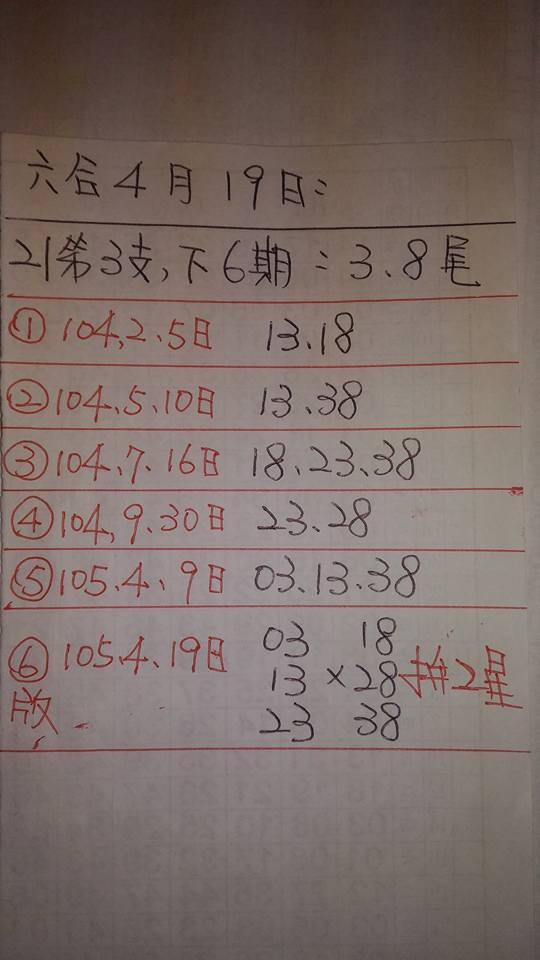 六合4月19日:
21第3支,下6期:3.8尾
①104.2.5日 13.18
②104.5.10日 13.38
③104.7.16日 18.23.38
④104.9.30日 23.28
⑤105.4.9日 03.13.38
⑥105.4.19日 03 18
13×28 拼2星
版 23 38